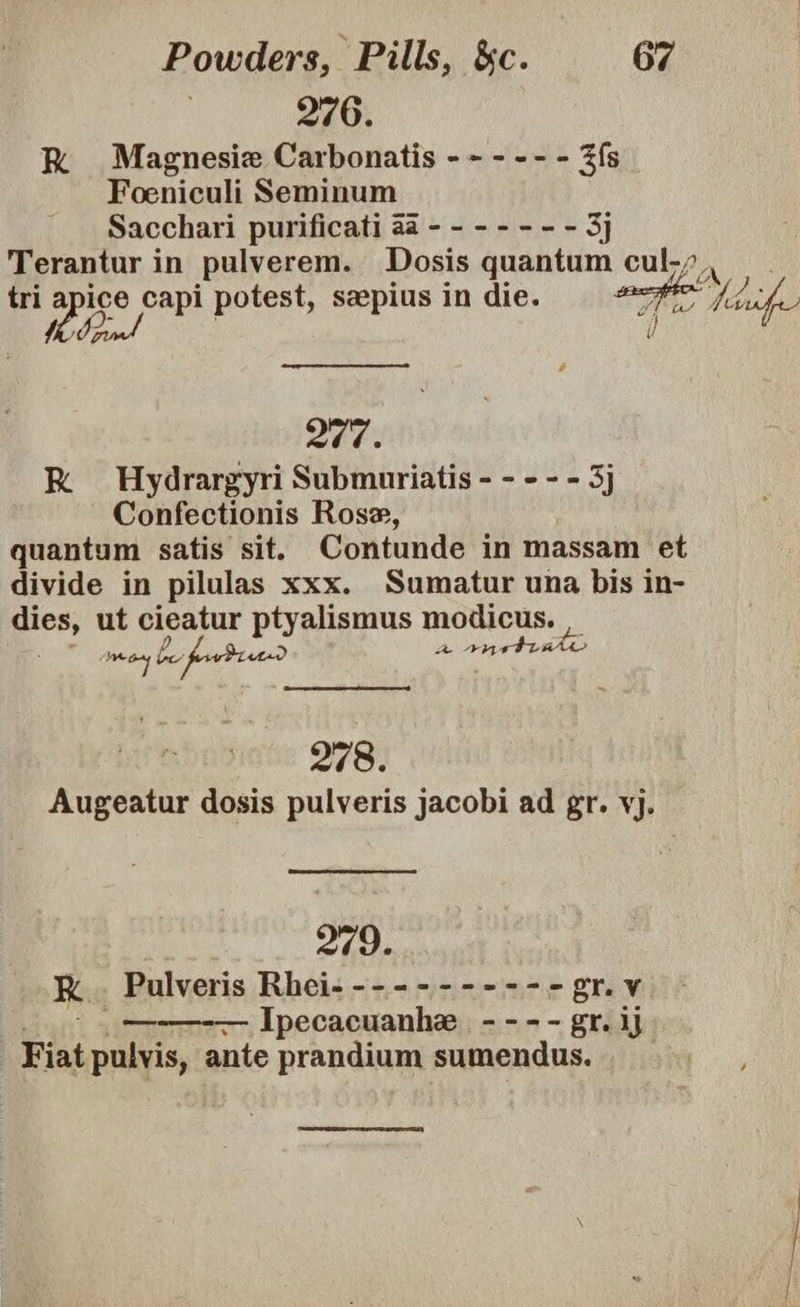 Powders, Pills, &c. 67
276.
℞ Magnesiæ Carbonatis - - - - - - ℥ſs
Foeniculi Seminum
Sacchari purificati āā - - - - - - - ʒj
Terantur in pulverem. Dosis quantum cul-
tri apice capi potest, sæpius in die.
277.
℞ Hydrargyri Submuriatis - - - - - ʒj
Confectionis Rosæ,
quantum satis sit. Contunde in massam et
divide in pilulas xxx. Sumatur una bis in-
dies, ut cieatur ptyalismus modicus.
may be
278.
Augeatur dosis pulveris jacobi ad gr. vj.
279.
℞ Pulveris Rhei - - - - - - - - - - - gr. v
———— Ipecacuanhæ - - - - gr. ij
Fiat pulvis, ante prandium sumendus.